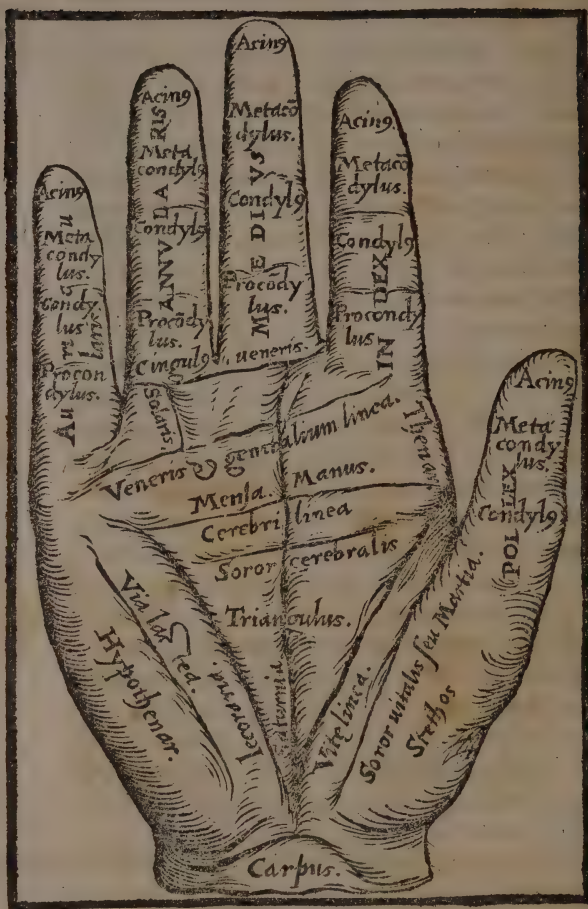 Acin9
Meta
condy
lus.
Condy
lus
Procon
dylus.
Auricu
laris
Acin9
Meta
condyl9
Condyl9
Procōdy
lus.
ANNVLARIS
Acin9
Metacō
dylus.
Condyl9
Procody
lus.
MEDIVS
Acin9
Metacō
dylus.
Condyl9
Procondy
lus
INDEX
Acin9
Meta
condy
lus.
Condyl9
POLLEX
Cingul9 ueneris.
Solaris.
Veneris & genitalium linea.
Thenar
Mensa Manus.
Cerebri linea
Soror cerebralis
Triangulus.
Via lactea.
Hypothenar.
Saturnia
Vitę linea.
Soror uitalis seu Martia.
Stethos
Carpus.